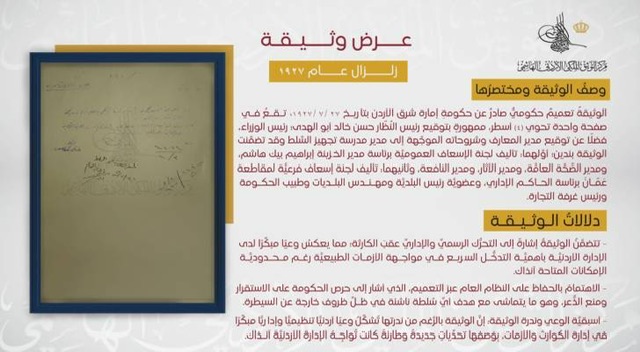 عرض وثـيـقـة
زلزال عـــام ١٩٢٧
وصفُ الوثيقة ومختصرُها
الوثيقةُ تعميمٌ حكوميٌّ صادرٌ عن حكومةِ إمارة شرق الأردن بتاريخ ٢٧ / ٧ / ١٩٢٧، تـقـعُ فـي
صفحة واحدة تحوي (٤) أسطر، ممهورةٍ بتوقيع رئيس النُّظار حسن خالد أبو الهدى، رئيس الوزراء،
فضلًا عن توقيع مدير المعارف وشروحاته الموجَّهة إلى مدير مدرسة تجهيز السَّلط وقد تضمَّنت
الوثيقة بندين، أوَّلهما، تأليف لجنة الإسعاف العموميَّة برئاسة مدير الخزينة إبراهيم بيك هاشم،
ومدير الصِّحَّة العامَّة، ومدير الآثار، ومدير النافعة، وثانيهما، تأليف لجنة إسعاف فرعيَّة لمقاطعة
عمّان برئاسة الحاكم الإداري، وعضويَّة رئيس البلديَّة ومهندس البلديات وطبيب الحكومة
ورئيس غرفة التجارة.
دلالاتُ الـوثـيـقـة
- تتضمَّنُ الوثيقةُ إشارةً إلى التحرُّك الرسميِّ والإداريِّ عقب الكارثة؛ مما يعكسُ وعيًا مبكرًا لدى
الإدارة الاردنيَّة بأهميَّة التدخُّل السريع في مواجهة الأزمات الطبيعيَّة رغم محدوديَّة
الإمكانات المتاحة آنذاك.
- الاهتمامُ بالحفاظ على النظام العام عبرَ التعميم، الذي اشار إلى حرص الحكومة على الاستقرار
ومنع الذُّعر، وهو ما يتماشى مع هدف أيِّ سُلطة ناشئة في ظلِّ ظروف خارجة عن السيطرة.
- اسبقيَّة الوعي وندرة الوثيقة، إنَّ الوثيقة بالرَّغم من ندرتها تُشكِّلُ وعيًا اردنيًّا تنظيميًّا وإداريًّا مبكرًا
في إدارة الكوارث والأزمات، بوَصفِها تحدِّيات جديدةً وطارئةً كانت تُواجهُ الإدارةَ الأردنيَّة آنذاك.